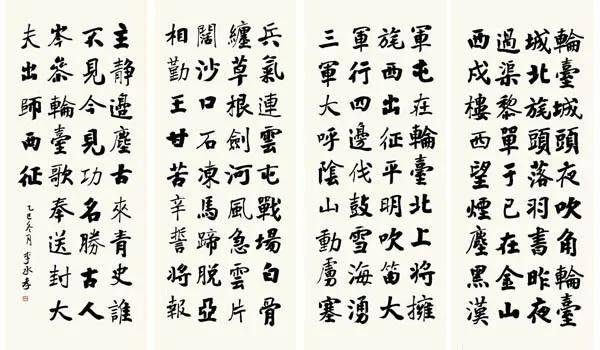 輪臺城頭夜吹角輪臺
城北旄頭落羽書昨夜
過渠黎單于已在金山
西戍樓西望煙塵黑漢
軍屯在輪臺北上將擁
旄西出征平明吹笛大
軍行四邊伐鼓雪海湧
三軍大呼陰山動虜塞
兵氣連雲屯戰場白骨
纏草根劍河風急雲片
闊沙口石凍馬蹄脫亞
相勤王甘苦辛誓將報
主靜邊塵古來青史誰
不見今見功名勝古人
岑參輪臺歌奉送封大
夫出師西征
乙巳冬月 李永